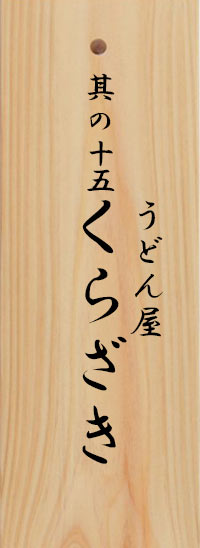 其の十五
うどん屋
くらざき